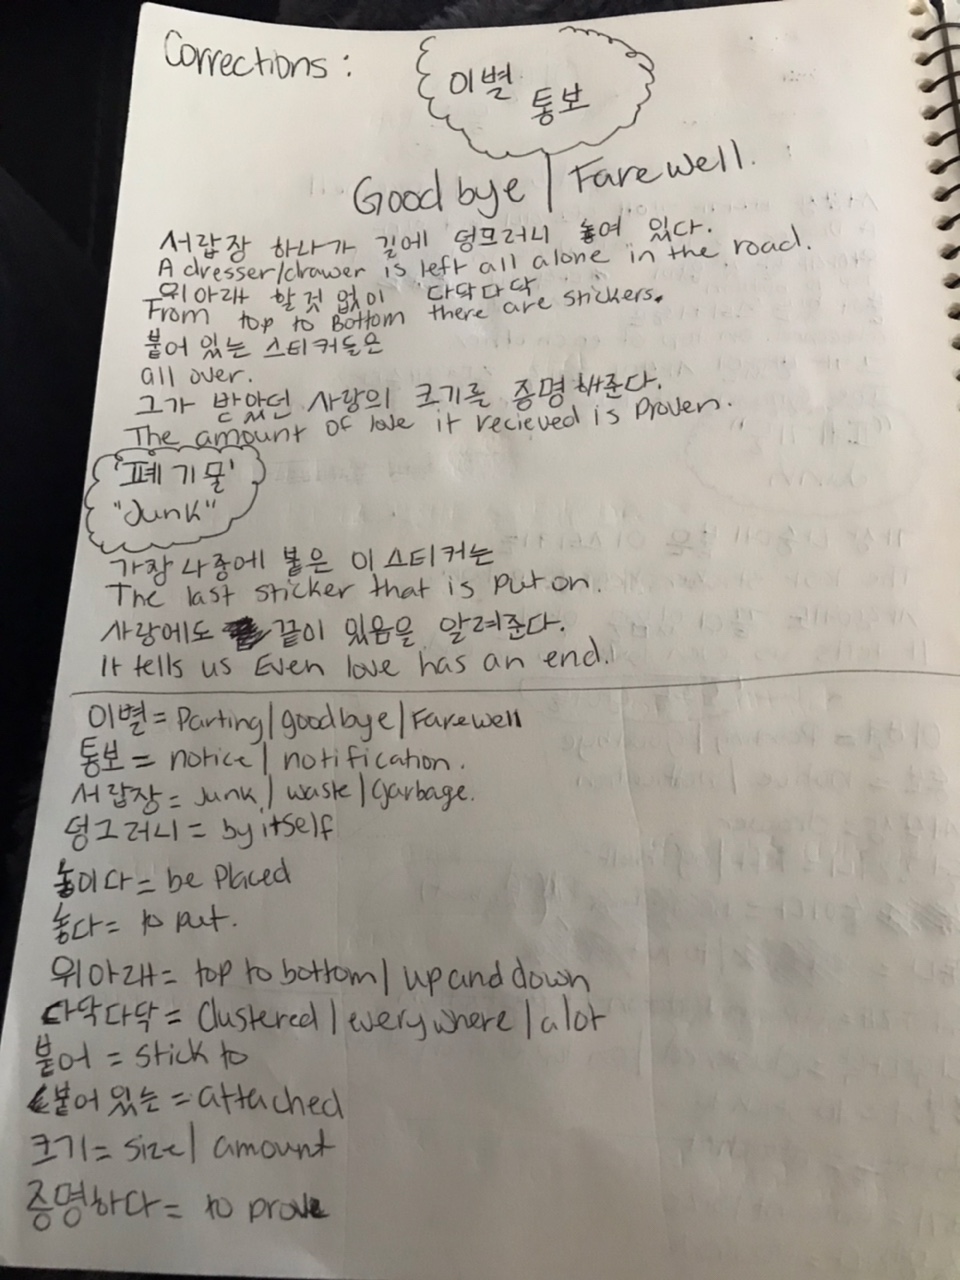 Corrections :
이별
통보
Goodbye | Farewell.
서랍장 하나가 길에 덩므러니 놓여 있다.
A dresser/drawer is left all alone in the road.
위아래 할것 없이 다닥다닥
From top to Bottom there are stickers.
붙어 있는 스티커들은
all over.
그가 받았던 사랑의 크기를 증명해준다.
The amount of love it recieved is Proven.
'폐기물'
"Junk"
가장 나중에 붙은 이 스티커는
The last sticker that is put on.
사랑에도 끝이 있음을 알려준다.
It tells us Even love has an end.
이별= Parting/goodbye/Farewell
통보= notice/ notification.
서랍장= Junk/ waste/Garbage.
덩그러니= by itself
놓이다= be Placed
놓다= to put.
위아래= top to bottom/ up and down
다닥다닥= Clustered/everywhere/a lot
붙어= stick to
붙어 있는= attached
크기= size/ amount
증명하다= to prove